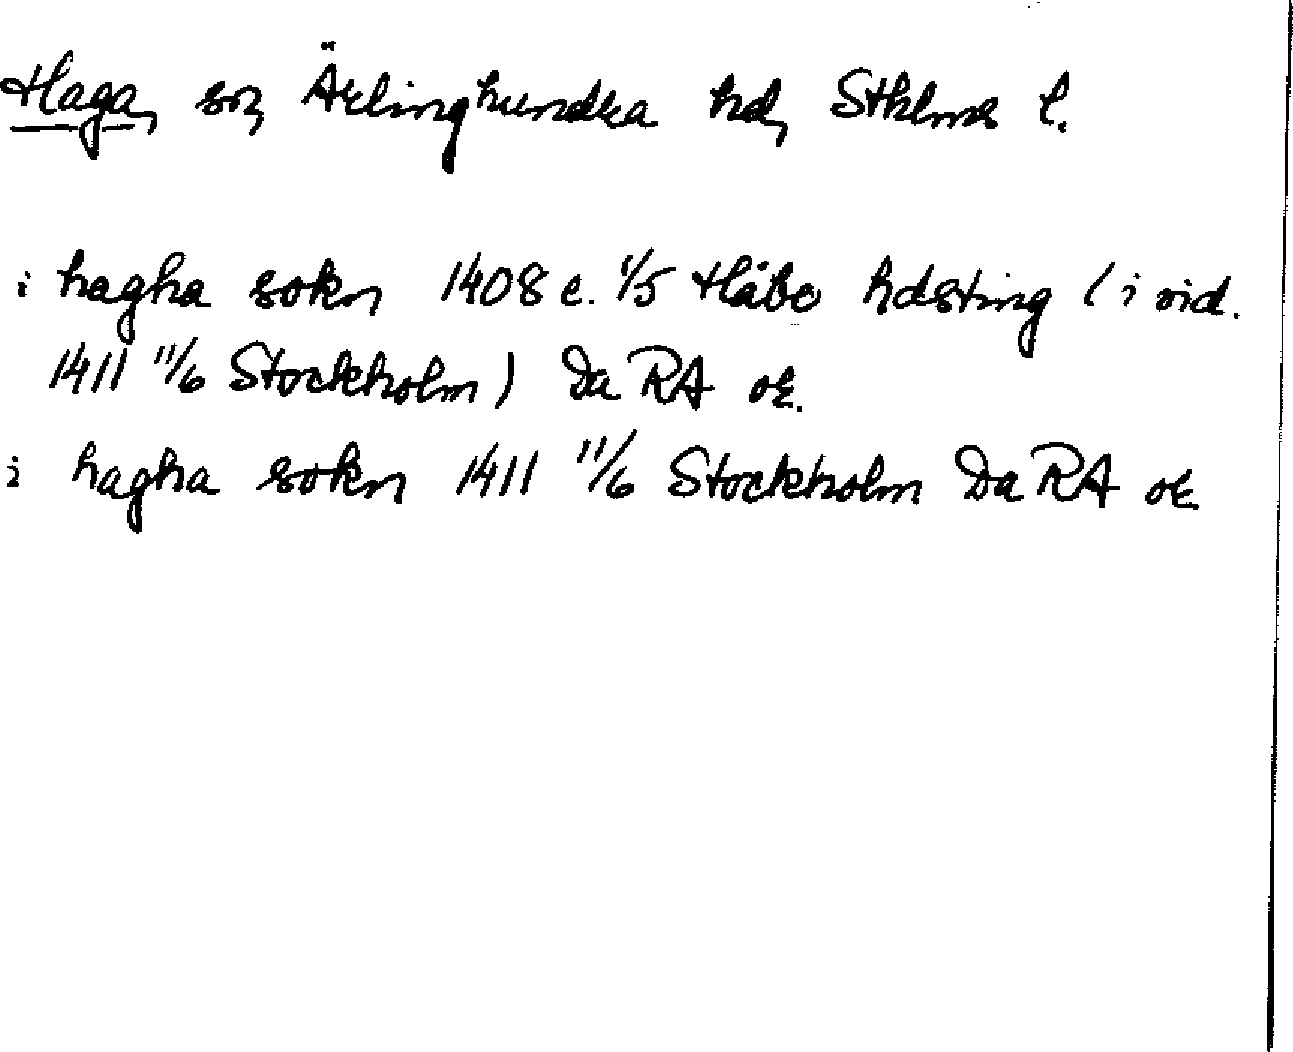 Haga, sn, Ärlinghundra hd, Sthlms l.
i hagha sokn 1408 e. 1/5 Håbo hdsting (i vid.
1411 11/6 Stockholm) Da RA or.
i hagha sokn 1411 11/6 Stockholm Da RA or.